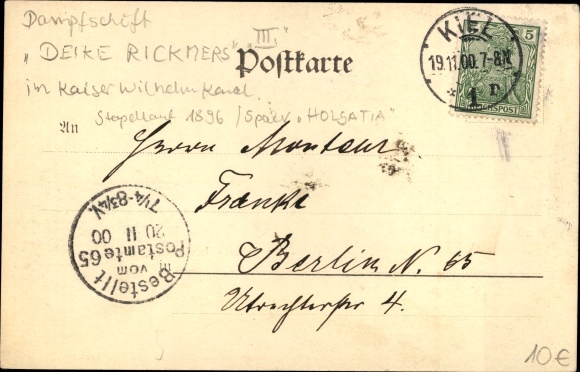 Dampfschift
„DEIKE RICKMERS" III.
Postkarte
im Kaiser Wilhelm Kanal.
Stapellauf 1896 / Später „HOLSATIA"
An
Herrn Monteur
Franke
Berlin N. 65
Utrechterstr 4.
KIEL
19.11.00.7-8N
* 1 P
5
REICHSPOST
Bestellt
vom
Postamte 65
20 11
00
7¼-8¾V.
10€